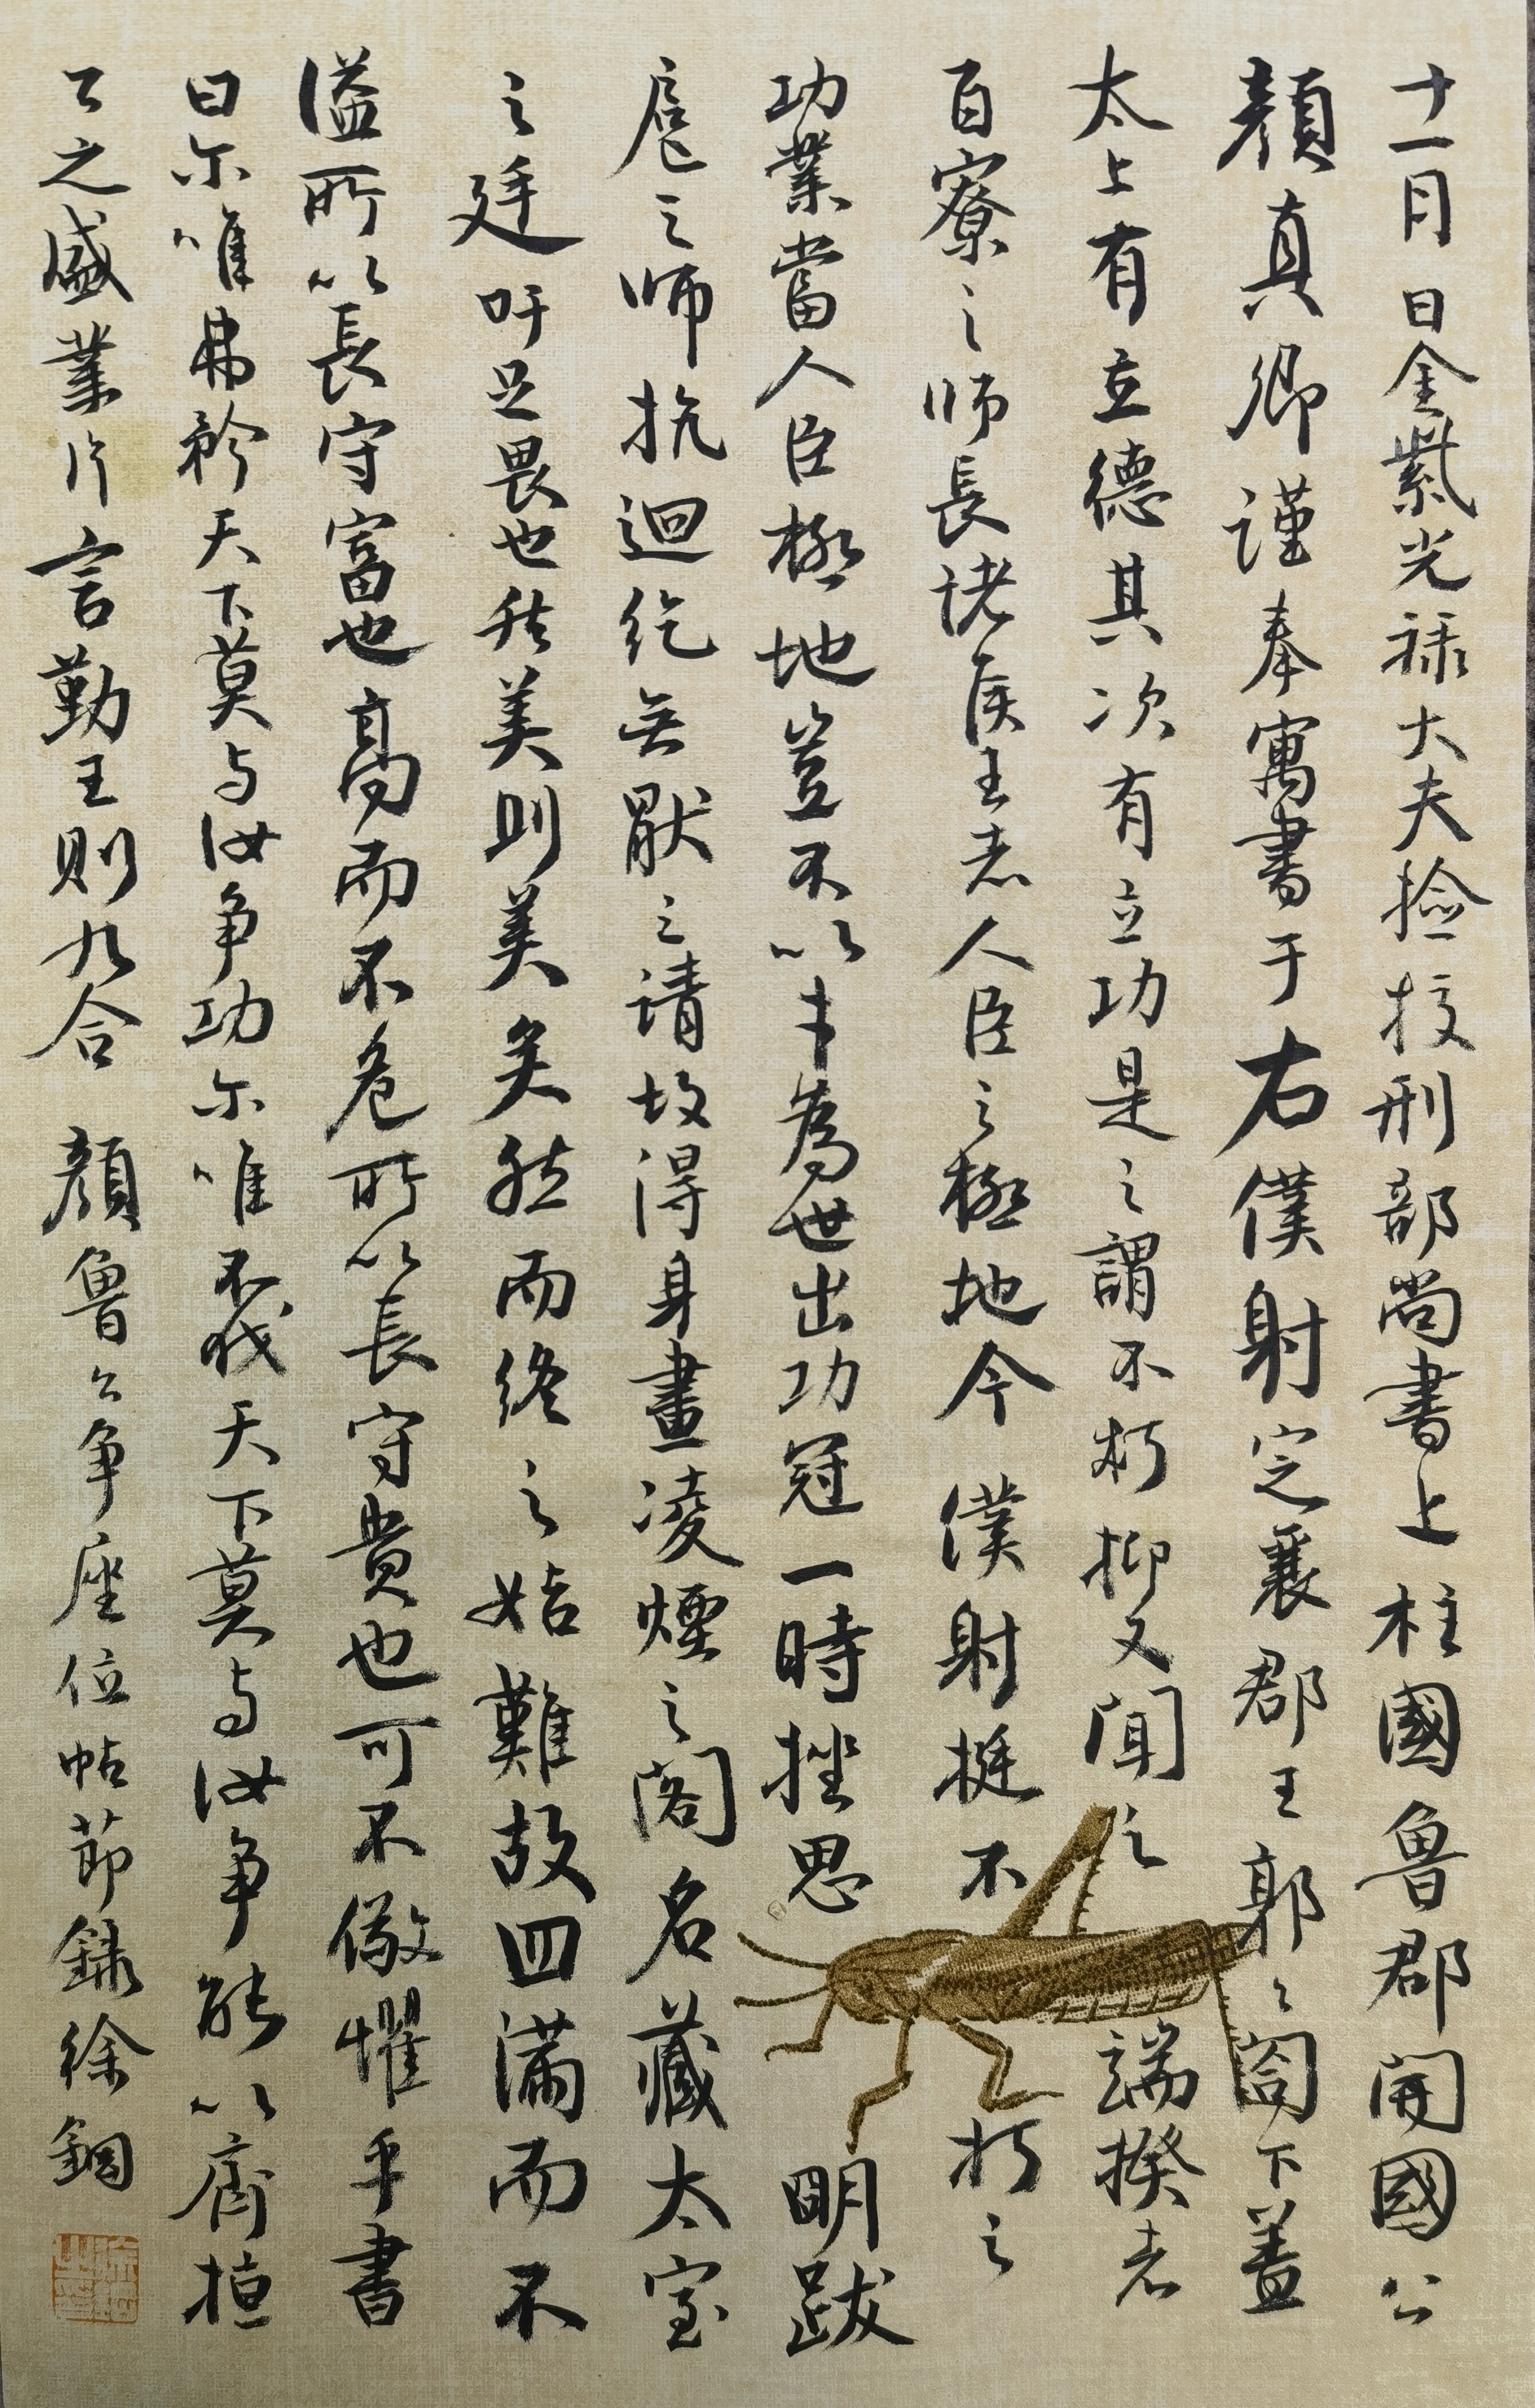 十一月日金紫光祿大夫撿挍刑部尚書上柱國魯郡開國公
顏真卿謹奉寓書于右僕射定襄郡王郭〻閤下蓋
太上有立德其次有立功是之謂不朽抑又聞之端揆者
百寮之師長諸侯王者人臣之極地今僕射挺不朽之
功業當人臣極地豈不以才為世出功冠一時挫思明跋
扈之師抗迴紇無厭之請故得身畫凌煙之閣名藏太室
之廷吁足畏也然美則美矣然而終之始難故曰滿而不
溢所以長守富也高而不危所以長守貴也可不儆懼乎書
曰尓唯弗矜天下莫与汝争功尓唯不伐天下莫与汝争能以齊桓
公之盛業片言勤王則九合 顏魯公争座位帖節錄徐鋼